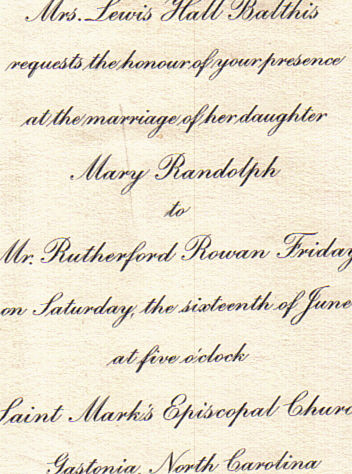 Mrs. Lewis Hall Balthis
requests the honour of your presence
at the marriage of her daughter
Mary Randolph
to
Mr. Rutherford Rowan Friday
on Saturday, the sixteenth of June
at five o'clock
Saint Mark's Episcopal Churc
Gastonia, North Carolina